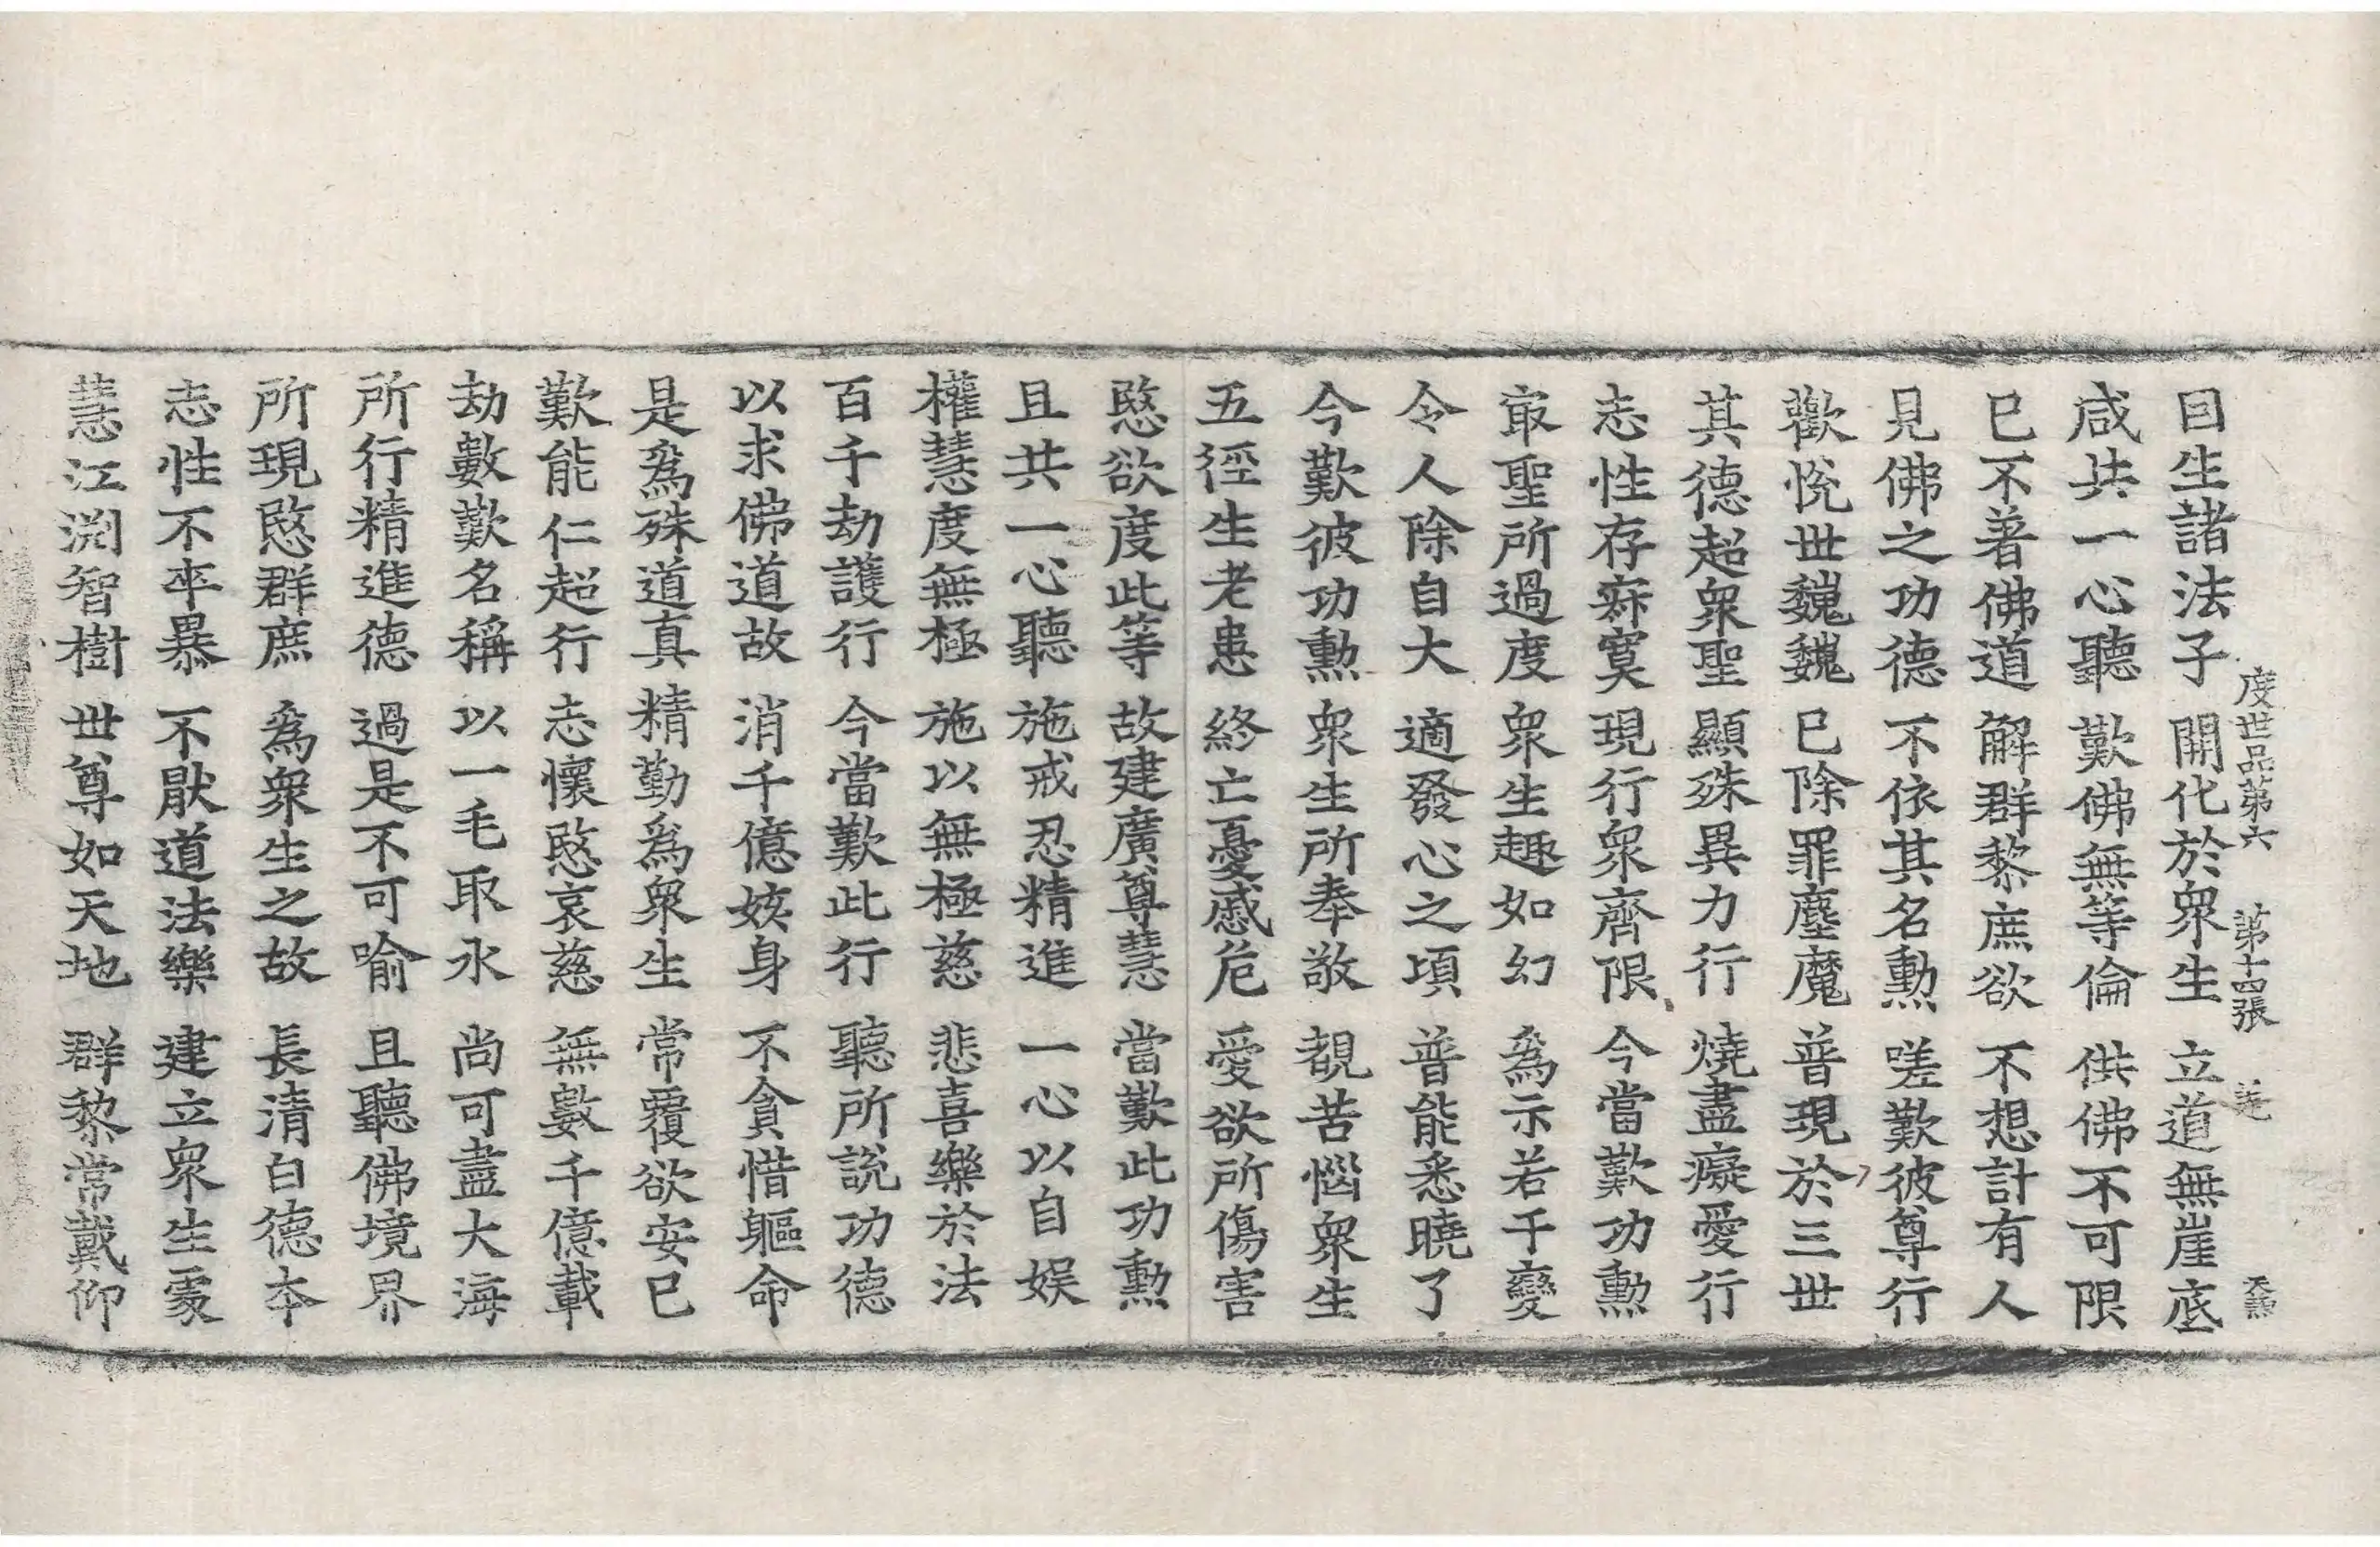 度世品第六 第十四張 羌 天𤋮
因生諸法子 開化於衆生 立道無崖底
咸共一心聽 歎佛無等倫 供佛不可限
已不著佛道 解群黎庶欲 不想計有人
見佛之功德 不依其名勳 嗟歎彼尊行
歡悅世巍巍 已除罪塵魔 普現於三世
其德超衆聖 顯殊異力行 燒盡癡愛行
志性存寂寞 現行衆齊限 今當歎功勳
㝡聖所過度 衆生趣如幻 爲示若干變
令人除自大 適發心之頃 普能悉曉了
今歎彼功勳 衆生所奉敬 覩苦惱衆生
五徑生老患 終亡憂慼危 愛欲所傷害
愍欲度此等 故建廣尊慧 當歎此功勳
且共一心聽 施戒忍精進 一心以自娛
權慧度無極 施以無極慈 悲喜樂於法
百千劫護行 今當歎此行 聽所說功德
以求佛道故 消千億姟身 不貪惜軀命
是爲殊道真 精勤爲衆生 常覆欲安已
歎能仁超行 志懷愍哀慈 無數千億載
劫數歎名稱 以一毛取水 尚可盡大海
所行精進德 過是不可喻 且聽佛境界
所現愍群庶 爲衆生之故 長清白德本
志性不卒暴 不猒道法樂 建立衆生處
慧江渕智樹 世尊如天地 群黎常戴仰